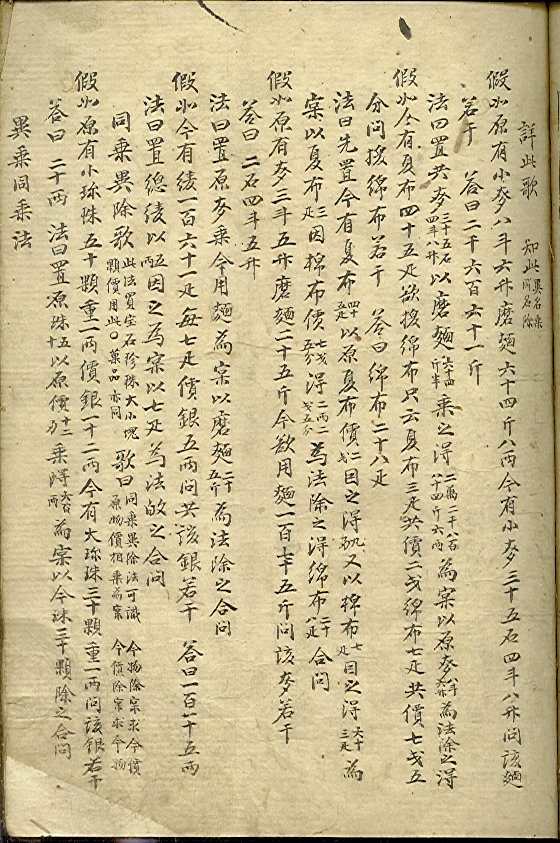 詳此歌　知此異名乘同名除
假如原有小麥八斗六升磨麵六十四斤八兩今有小麥三十五石四斗八升问該麵
若干　答曰二千六百六十一斤
法曰置共麥三十五石四斗八升以磨麵六十四斤半乘之得二萬二千八百八十四斤六兩為实以原麥八斗六升為法除之得
假如今有夏布四十五疋欲换綿布只云夏布三疋共價二戋綿布七疋共價七戋五
分问换綿布若干　答曰綿布二十八疋
法曰先置今有夏布四十五疋以原夏布價二因之得九又以棉布七疋因之得六十三疋為
实以夏布三因棉布價七戋五分得二两二戋五分為法除之得綿布二十八疋合问
假如原有麥三斗五升磨麵二十五斤今欲用麵一百七十五斤问該麥若干
答曰二石四斗五升
法曰置原麥乘今用麵為实以磨麵二十五斤為法除之合问
假如今有綾一百六十一疋每七疋價銀五两问共該銀若干　答曰一百一十五两
法曰置總綾以五两因之為实以七疋為法㱕之合问
同乘異除歌此法買宝石珍珠大小塊顆價用此〇藥品亦同歌曰同乘異除法可識　今物除实求今價原物價相乘為实　今價除实求今物
假如原有小珎珠五十顆重一两價銀一十二两今有大珎珠三十顆重一两问該銀若干
答曰二十两　法曰置原珠五十以原價十二两乘得六百两為实以今珠三十顆除之合问
異乘同乘法